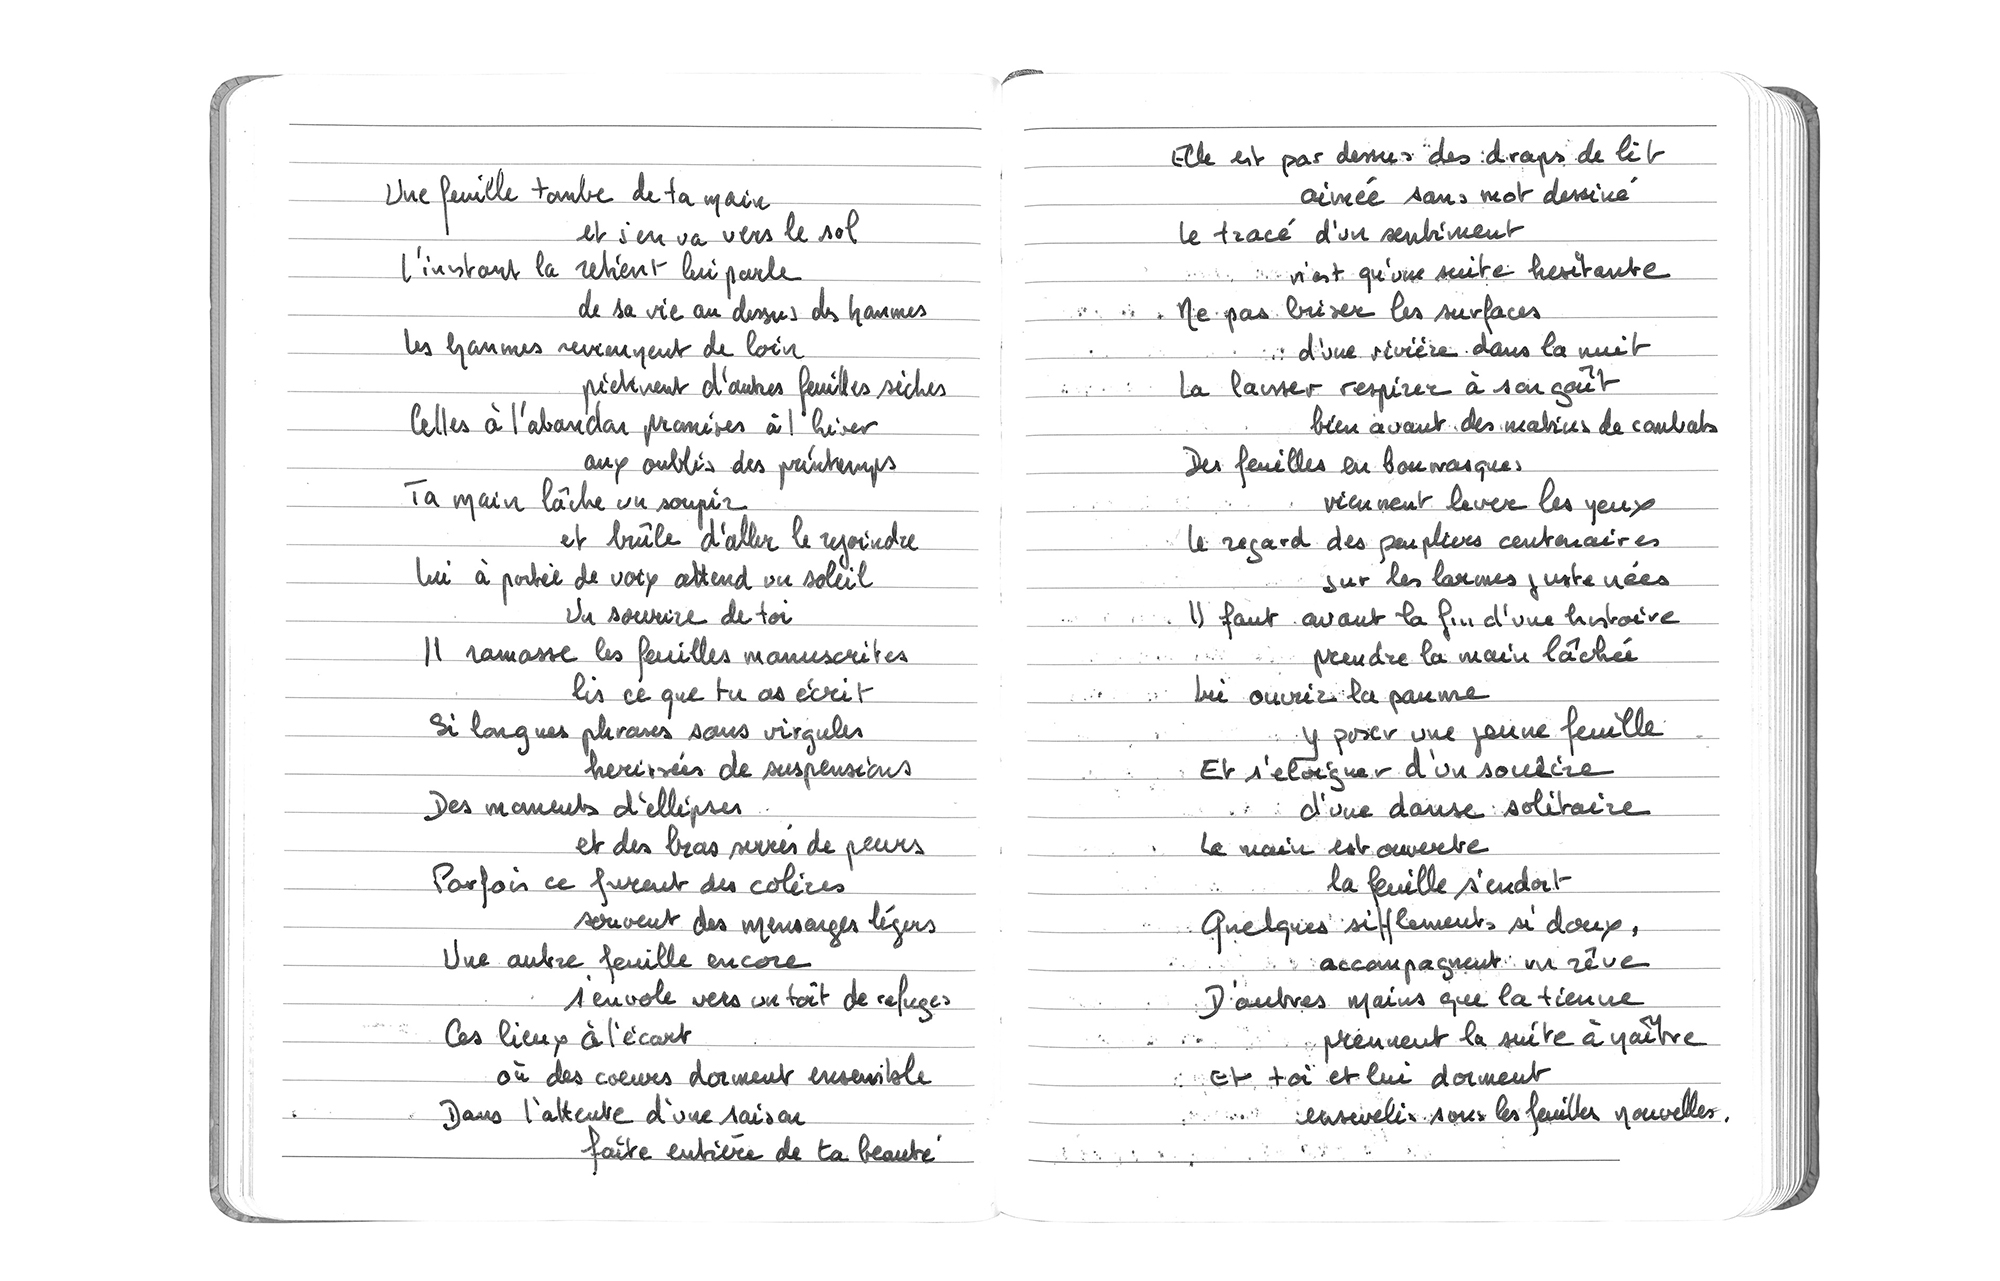 Une feuille tombe de ta main
et s'en va vers le sol
L'instant la retient lui parle
de sa vie au dessus des hommes
Les hommes reviennent de loin
piétinent d'autres feuilles sèches
Celles à l'abandon promises à l'hiver
aux oublis des printemps
Ta main lâche un soupir
et brûle d'aller le rejoindre
Lui à portée de voix attend un soleil
Un sourire de toi
Il ramasse les feuilles manuscrites
lis ce que tu as écrit
Si longues phrases sans virgules
herissées de suspensions
Des moments d'ellipses
et des bras serrés de peurs
Parfois ce furent des colères
souvent des mensonges légers
Une autre feuille encore
s'envole vers un toît de refuges
Ces lieux à l'écart
où des coeurs dorment ensemble
Dans l'attente d'une saison
faîte entière de ta beauté
Elle est par dessus des draps de lit
aimée sans mot dessiné
Le tracé d'un sentiment
n'est qu'une suite hesitante
Ne pas briser les surfaces
d'une rivière dans la nuit
La laisser respirer à son goût
bien avant des matins de combats
Des feuilles en bourrasques
viennent lever les yeux
Le regard des peupliers centenaires
sur les larmes juste nées
Il faut avant la fin d'une histoire
prendre la main lâchée
Lui ouvrir la paume
y poser une jeune feuille
Et s'eloigner d'un sourire
d'une danse solitaire
La main est ouverte
la feuille s'endort
Quelques sifflements si doux,
accompagnent un rêve
D'autres mains que la tienne
prennent la suite à naître
Et toi et lui dorment
ensevelis sous les feuilles nouvelles.